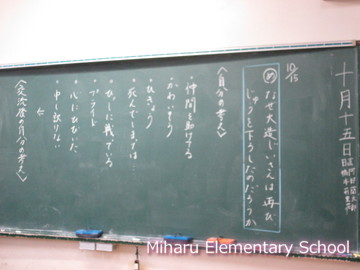 十月十五日
10/15
め なぜ大造じいさんは再び
じゅうを下ろしたのだろうか
〈自分の考え〉
・仲間を助けてる
・かわいそう
・ひきょう
・死んでしまっては…
・ひっしに戦っている
・プライド
・心にひびいた
・申し訳ない
←
〈交流後の自分の考え〉
Miharu Elementary School